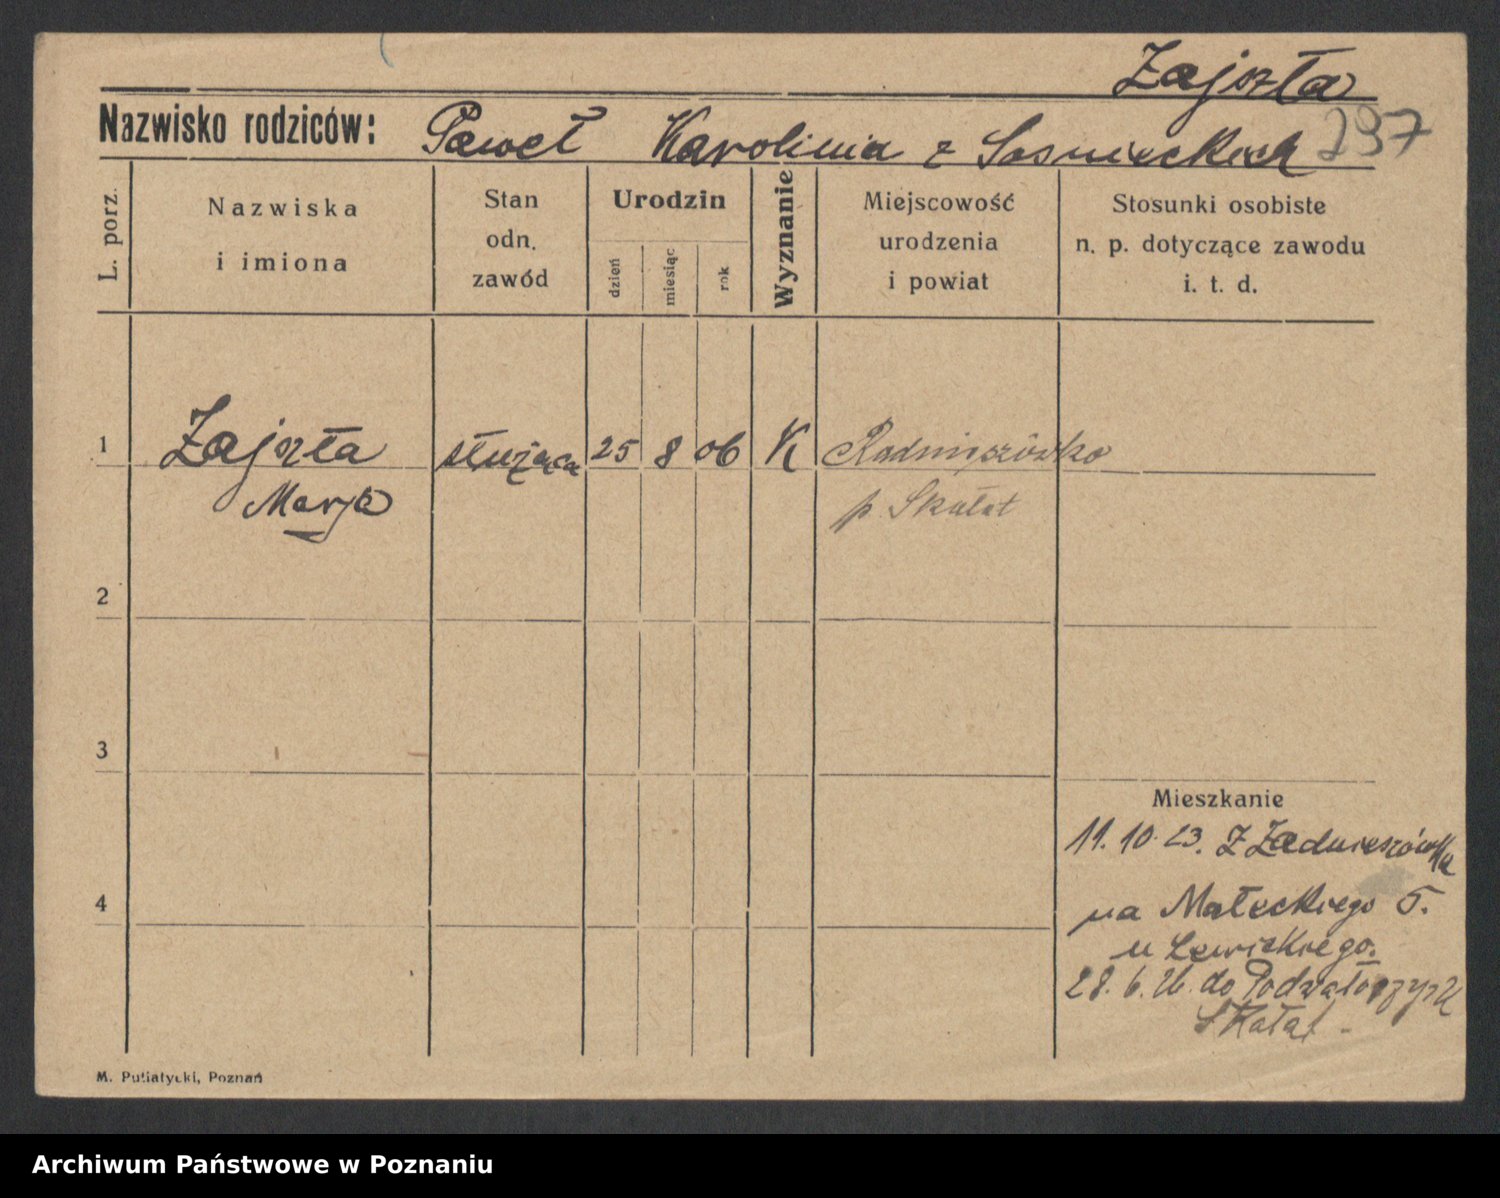 Zajszła
Nazwisko rodziców: Paweł Karolinia z Sosnieckich 297
L. porz.
Nazwiska
i imiona
Stan
odn.
zawód
Urodzin
dzień
miesiąc
rok
Wyznanie
Miejscowość
urodzenia
i powiat
Stosunki osobiste
n. p. dotyczące zawodu
i. t. d.
1 Zajszła służąca 25 8 06 K
Marja p. Skałat
2
3
Mieszkanie
11. 10. 23. Z
4
na Małeckiego 5.
u Lewickiego.
28. 6. 26. do
Skałat -
M. Putiatycki, Poznań
Archiwum Państwowe w Poznaniu